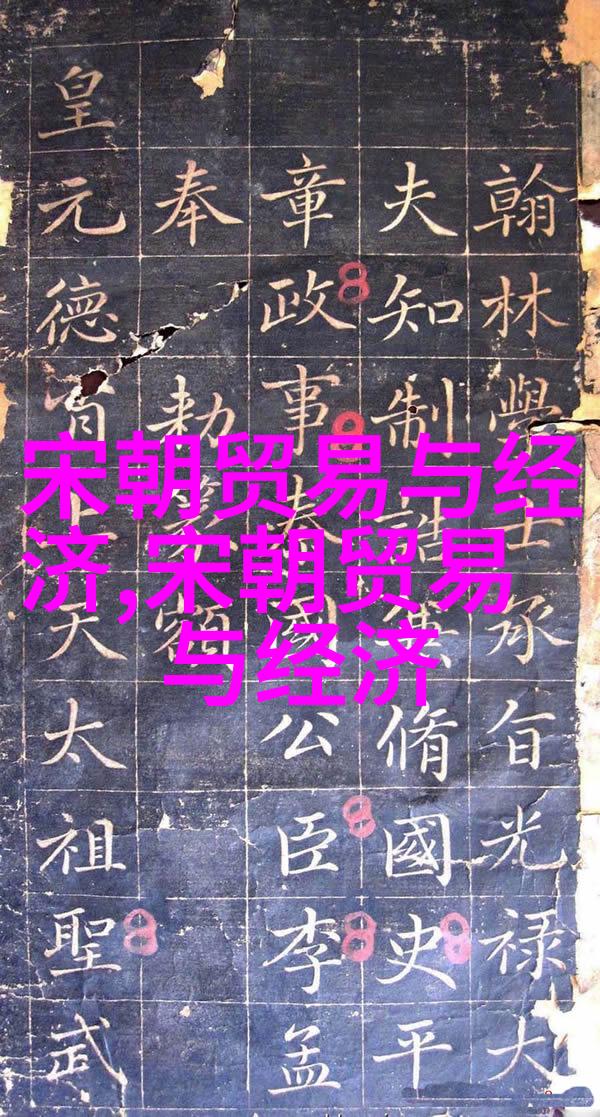 宋朝贸易与经
济,宋朝贸易
与经济
翰林學士承旨光禄大
夫知制誥兼脩國史平
章政事國公臣李孟
奉勑篆額
皇元德上天太祖聖武